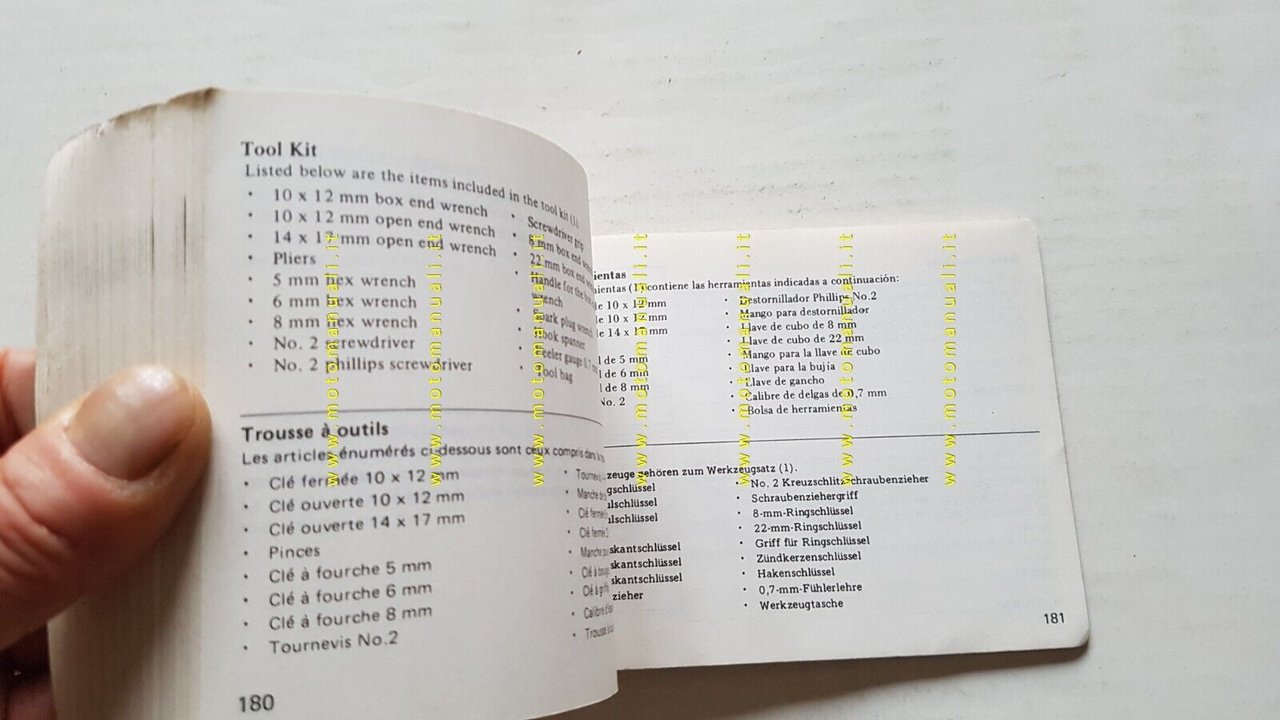 Tool Kit
Listed below are the items included in the tool kit (1).
• 10 x 12 mm box end wrench
• 10 x 12 mm open end wrench
• 14 x 17 mm open end wrench
• Pliers
• 5 mm hex wrench
• 6 mm hex wrench
• 8 mm hex wrench
• No. 2 screwdriver
• No. 2 phillips screwdriver
• Screwdriver grip
• 8 mm box end
• 22 mm box end
• Handle for the
wrench
• Spark plug wrench
• Hook spanner
• Feeler gauge 0.7
• Tool bag
Trousse à outils
Les articles énumérés ci-dessous sont ceux compris dans
• Clé fermée 10 x 12 mm
• Clé ouverte 10 x 12 mm
• Clé ouverte 14 x 17 mm
• Pinces
• Clé à fourche 5 mm
• Clé à fourche 6 mm
• Clé à fourche 8 mm
• Tournevis No.2
• Tournevis
• Manche
• Clé
• Clé
• Manche
• Clé à
• Clé à
• Calibre
• Trousse à
180
ientas
ientas (1) contiene las herramientas indicadas a continuación:
e 10 x 12 mm
e 10 x 12 mm
e 14 x 17 mm
l de 5 mm
l de 6 mm
l de 8 mm
No. 2
• Destornillador Phillips No.2
• Mango para destornillador
• Llave de cubo de 8 mm
• Llave de cubo de 22 mm
• Mango para la llave de cubo
• Llave para la bujía
• Llave de gancho
• Calibre de delgas de 0,7 mm
• Bolsa de herramientas
zeuge gehören zum Werkzeugsatz (1).
gschlüssel
ulschlüssel
ulschlüssel
skantschlüssel
skantschlüssel
skantschlüssel
zieher
• No. 2 Kreuzschlitzschraubenzieher
• Schraubenziehergriff
• 8-mm-Ringschlüssel
• 22-mm-Ringschlüssel
• Griff für Ringschlüssel
• Zündkerzenschlüssel
• Hakenschlüssel
• 0,7-mm-Fühlerlehre
• Werkzeugtasche
181
www.motomanuali.it
www.motomanuali.it
www.motomanuali.it
www.motomanuali.it
www.motomanuali.it
www.motomanuali.it
www.motomanuali.it